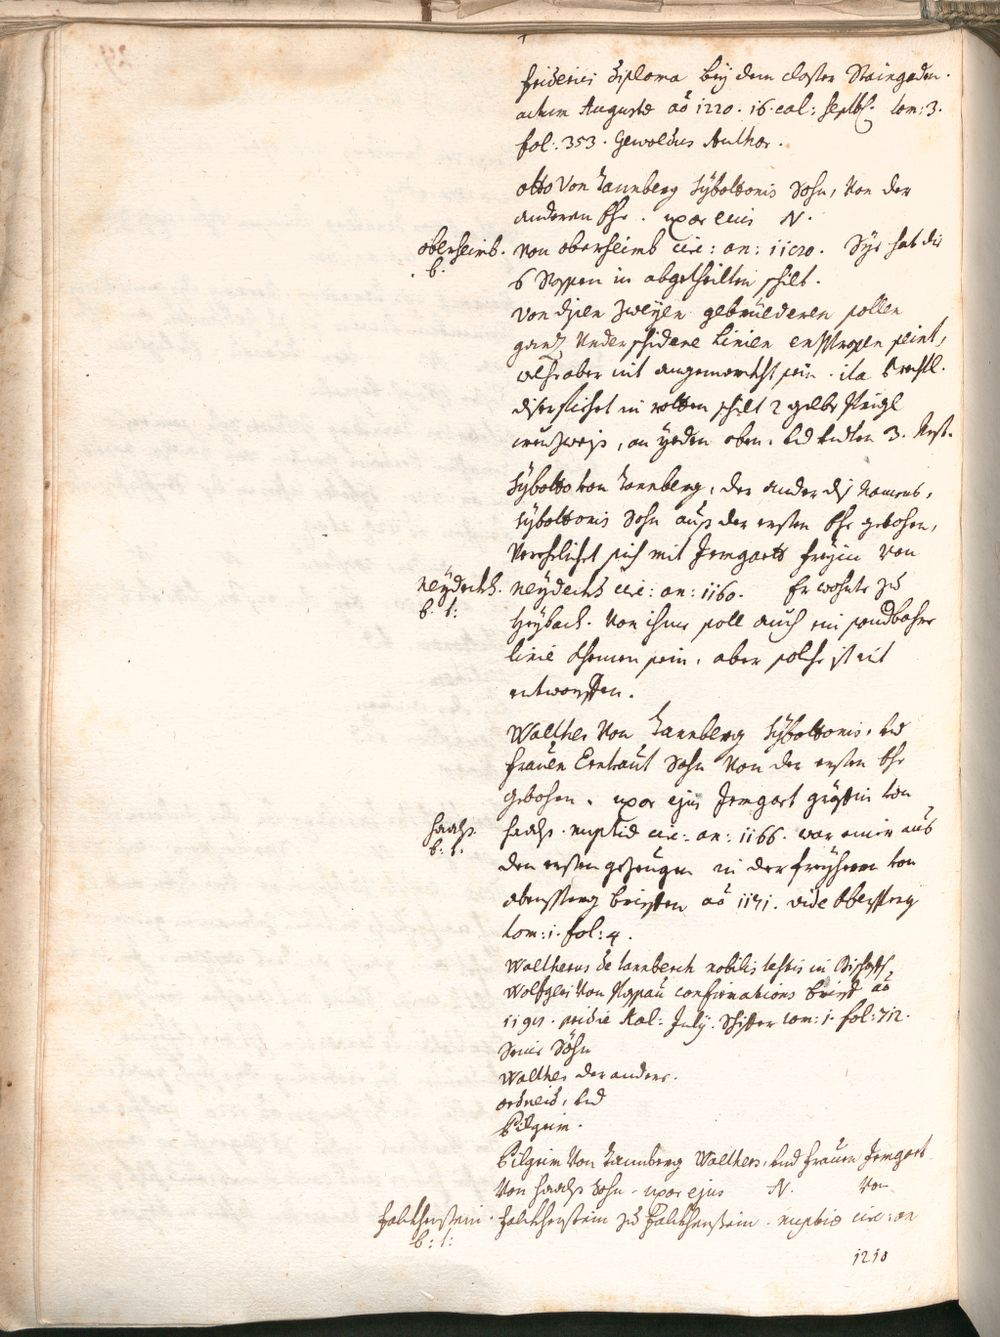 Friderici diploma beÿ dem closter Staingaden.
actum Augustæ aõ 1220. 16. cal: Septb. tom: 3.
fol: 353. Gewoldus Author.
Otto Von Tannberg Sÿboltonis Sohn, Von der
anderen Ehe. uxor eius N.
Oberheimb. Von Oberheimb circ: an: Sye hat die
6 in abgetheilten schilt.
Von disen zweÿen gebrüederen sollen
gantz Underschidene Linien entsprossen seint,
welche aber nit angemerckht sein. ita
diser fiehrt in rotten schilt 2 gelbe
creuzweiß, an ÿeden oben, Und Undten 3.
Sÿbolto von Tannberg, der ander diß Namens,
Sÿboltonis Sohn auß der ersten Ehe gebohren,
Verehelicht sich mit Irmgart Freÿin Von
Neÿdeckh. Neÿdeckh circ: an: 1160. Er wohnte zu
b: t:
Heÿbach. Von ihme soll auch ein sondbahre
linie khomen sein, aber solche ist nit
entworffen.
Walther Von Tannberg Sÿboltonis, Und
Frauen Erntraut Sohn Von der ersten Ehe
gebohren. uxor ejus Irmgart gräffin von
Haachs. Haachs. nuptiæ circ: an: 1166. war einer aus
b: t.
den ersten gezeugen in der freÿherrn von
brieffen aõ vide
tom: 1. fol: 4.
Waltherus de Tannberch nobilis testis in Bischoff
Wolfgeri Von Passau confirmations brieff aõ
pridie Kal: Julÿ. tom: 1. fol: 712.
Seine Söhn
Walther der ander.
Und
Pilgrim.
Pilgrim Von Tannberg Walthers, Und Frauen Irmgart
Von Haachs Sohn. uxor ejus N. Von
Falckhenstein. Falckhenstein zu Falckhenstein. nuptiæ circ: an
b: t:
1210